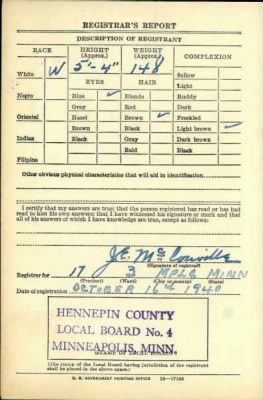 REGISTRAR'S REPORT
DESCRIPTION OF REGISTRANT
RACE HEIGHT (Approx.) WEIGHT (Approx.) COMPLEXION
White W 5'-4" 148 Sallow
EYES HAIR Light
Negro Blue ✓ Blonde Ruddy
Gray Red Dark
Oriental Hazel Brown ✓ Freckled
Brown Black Light brown ✓
Indian Black Gray Dark brown
Bald Black
Filipino
Other obvious physical characteristics that will aid in identification
I certify that my answers are true; that the person registered has read or has had
read to him his own answers; that I have witnessed his signature or mark and that
all of his answers of which I have knowledge are true, except as follows:
J.E. Mc
(Signature of registrar)
Registrar for 17 3 MPLS MINN
(Precinct) (Ward) (City or county) (State)
Date of registration OCTOBER 16th 1940
HENNEPIN COUNTY
LOCAL BOARD No. 4
MINNEAPOLIS, MINN.
(STAMP OF LOCAL BOARD)
(The stamp of the Local Board having jurisdiction of the registrant
shall be placed in the above space.)
U. S. GOVERNMENT PRINTING OFFICE 16-17105